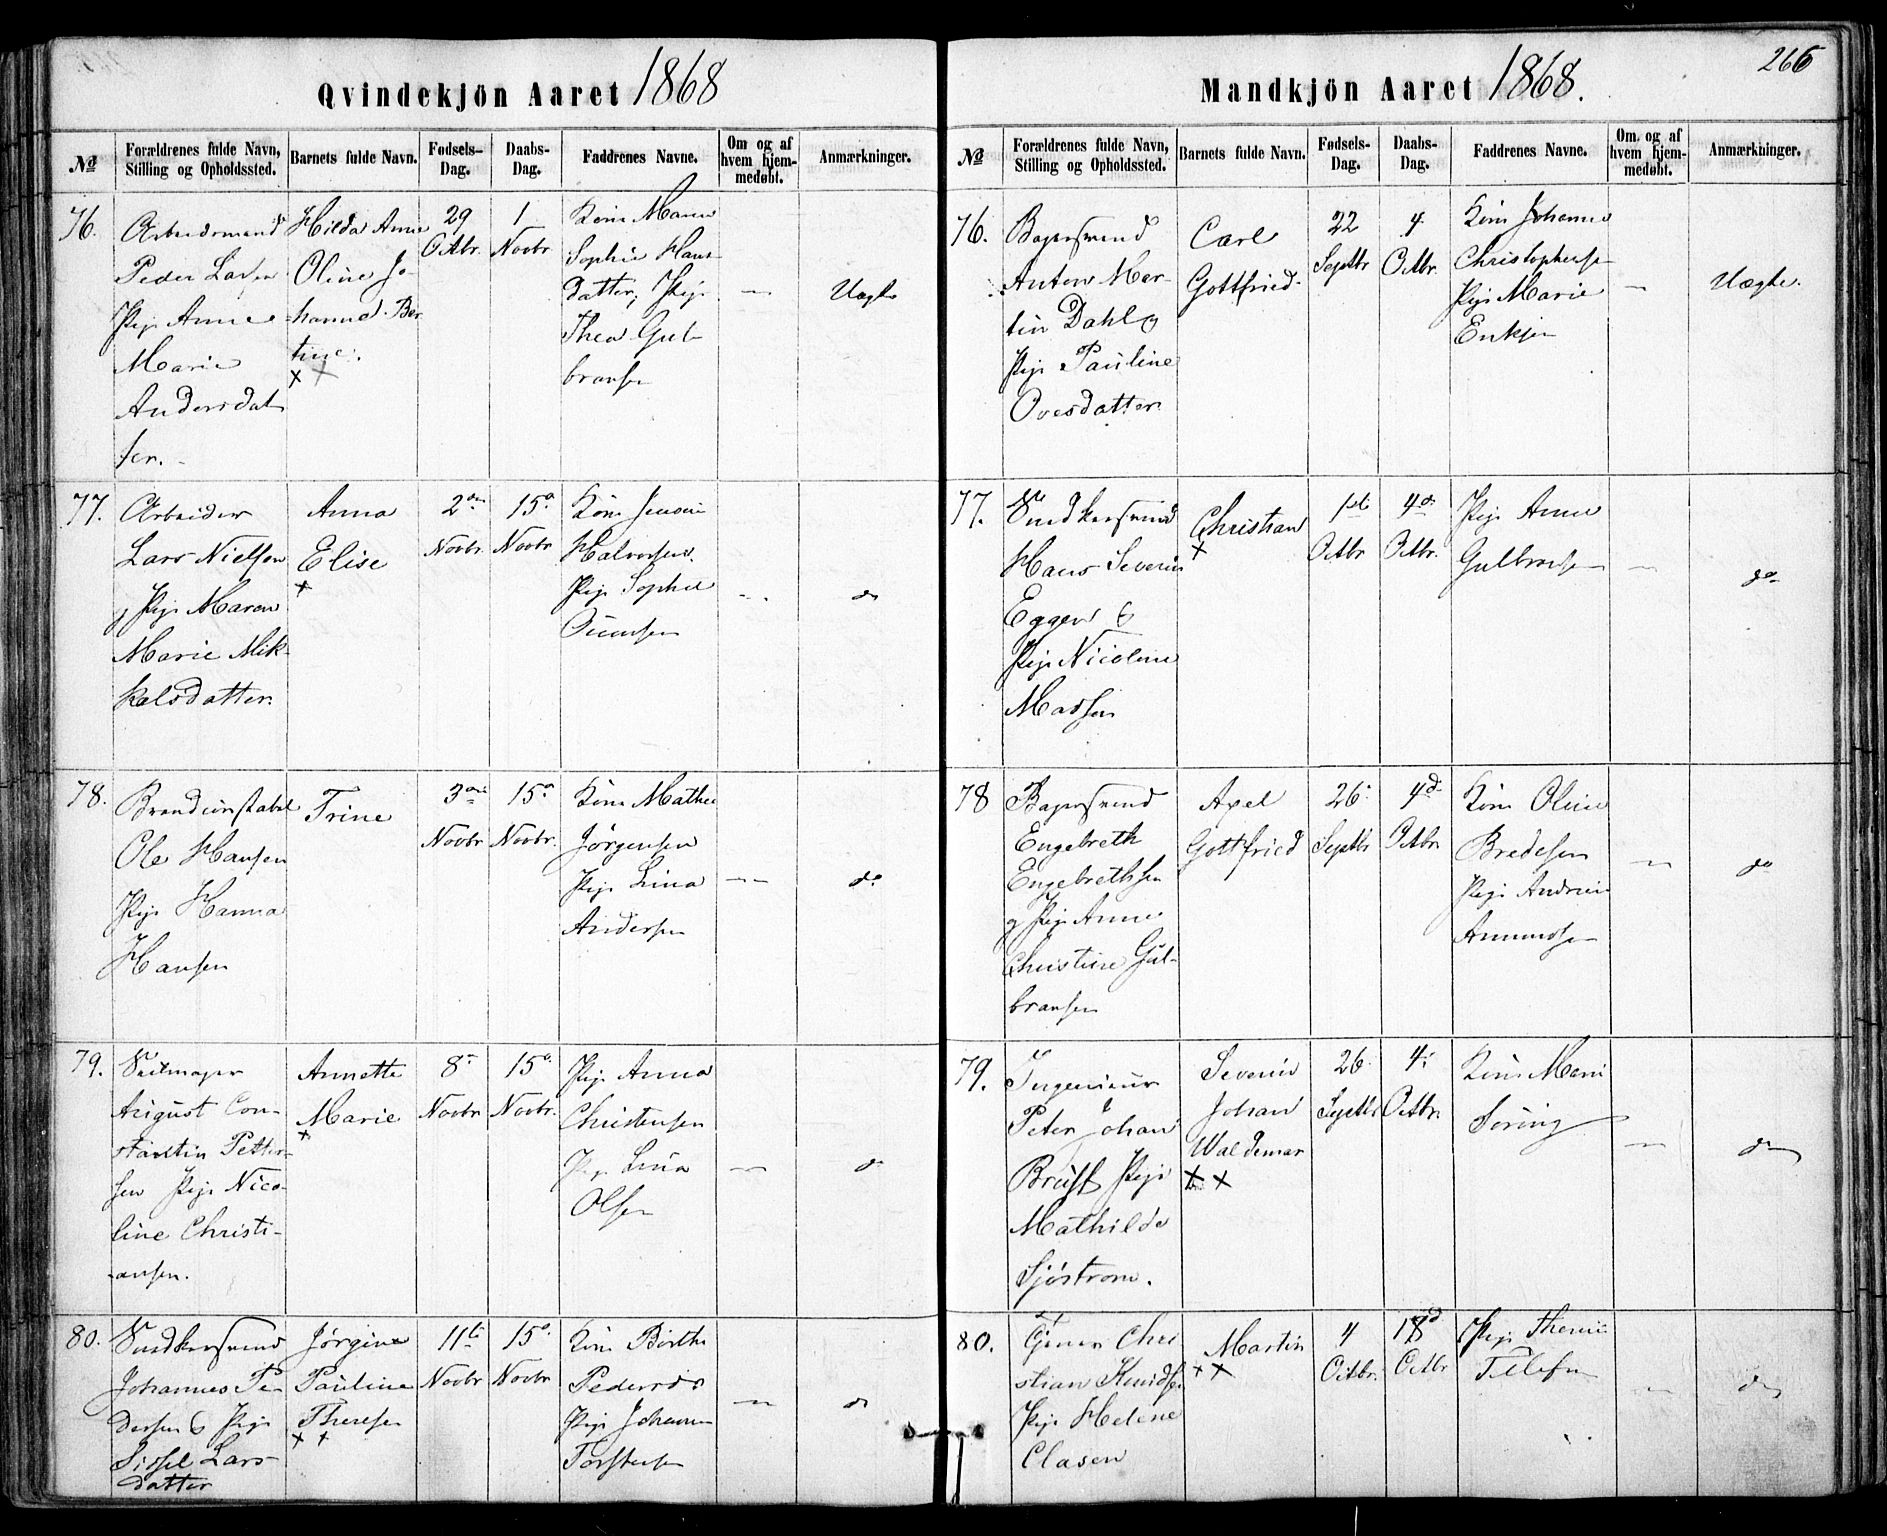 Qvindekjön Aaret 1868
№
Forældrenes fulde Navn, Stilling og Opholdssted.
Barnets fulde Navn.
Fødsels-Dag.
Daabs-Dag.
Faddrenes Navne.
Om og af hvem hjemmedøbt.
Anmærkninger.
76.
Arbeidsmand
Peder Larsen
Pige Anne
Marie
Andersdat
ter.
Hilda Anne
Oline Jo-
hanna Ber
tine.
29
Octbr.
1
Novbr
Kone Maren
Sophie Hans
datter, Pige
Thea Gul
bransen
Uægte
77.
Arbeider
Lars Nielsen
g Pige Maren
Marie Mik-
kelsdatter.
Anna
Elise
2den
Novbr
15d
Novbr
Kone
Halvorsen.
Pige Sophie
do
78.
Brandconstabel
Ole Hansen
Pige Hanna
Hansen
Trine
3die
Novbr
15d
Novbr.
Kone Mathea
Jørgensen
Pige Lina
Andersen
do
79.
Seilmager
August Con-
stantin Petter-
sen Pige Nico-
line Christi-
ansen.
Annette
Marie
8
Novbr
15d
Novbr.
Pige Anna
Christensen
Pige Lina
Olsen
do
80.
Snedkersvend
Johannes Pe-
dersen & Pige
Sissel Lars
datter
Jørgine
Pauline
Therese
11te
Novbr
15d
Novbr
Kone Birthe
Pedersds
Pige Johanne
Torstensen
do
266
Mandkjön Aaret 1868.
№
Forældrenes fulde Navn, Stilling og Opholdssted.
Barnets fulde Navn.
Fødsels-Dag.
Daabs-Dag.
Faddrenes Navne.
Om og af hvem hjemmedøbt.
Anmærkninger.
76.
Bagersvend
Anton Mar-
tin Dahl og
Pige Pauline
Ovesdatter.
Carl
Gottfried.
22
Septbr
4
Octbr.
Kone Johanne
Christophersen
Pige Marie
Eriksen
Uægte.
77.
Snedkersvend
Hans Severin
Eggen &
Pige Nicoline
Madsen
Christian
1ste
Octbr
4de
Octbr.
Pige Anne
Gulbransen
do
78
Bagersvend
Engebreth
Engebrethsen
g Pige Anne
Christine Gul-
bransen
Axel
Gottfried
26
Septbr
4d
Octbr
Kone Oline
Bredesen
Pige Andrine
Amundsen
do
79.
Ingenieur
Peter Johan
Brust Pige
Mathilde
Sjöstrom.
Severin
Johan
Waldemar
26
Septbr
4
Octbr.
Kone Marie
Soring
do
80.
Tjener Chri
stian Knudsen
Pige Helene
Clasen
Martin
4
Octbr.
18d
Octbr
Pige
Tellefsen
do